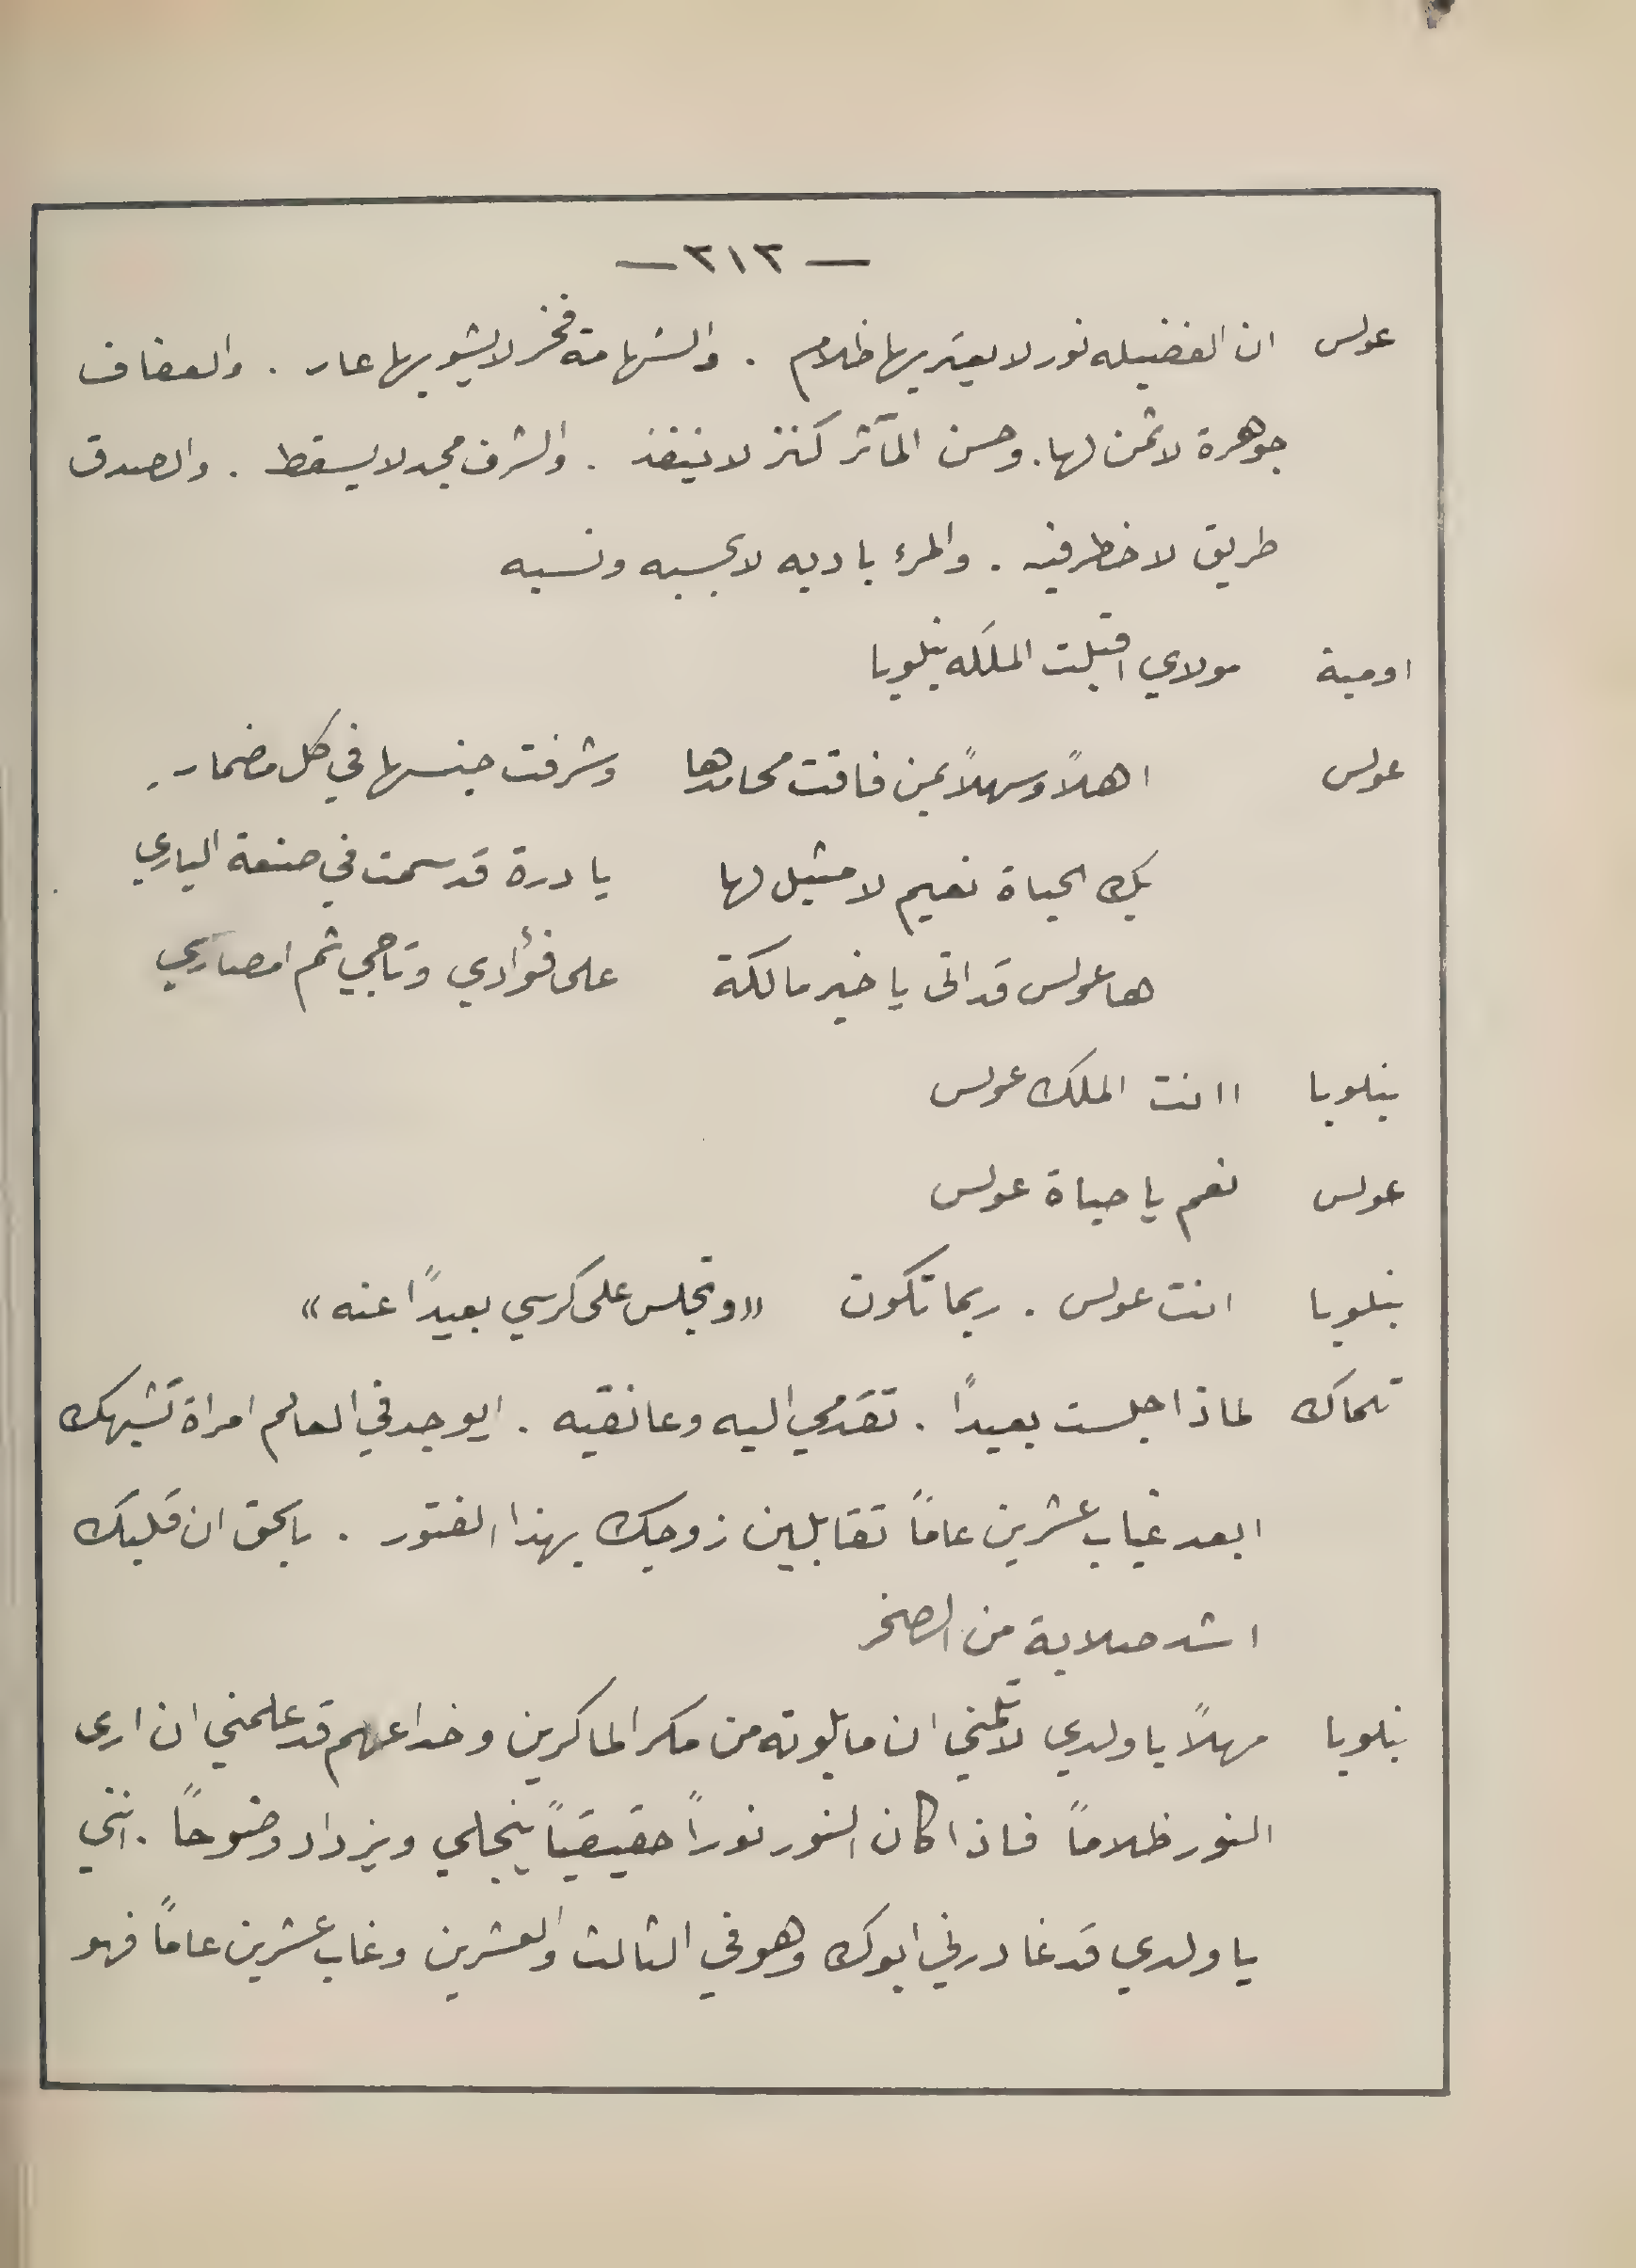 — ٣١٣ —
عولس ان الفضيله نور لا يعتريها ظلام . والشهامة فخر لا يشوبها عار . والعفاف
جوهرة لا ثمن لها . وحسن المآثر كنز لا ينفذ . والشرف مجد لا يسقط . والصدق
طريق لا خطر فيه . والمرء بادبه لا بحسبه ونسبه
اومية مولاي اقبلت الملكه بنلوبا
عولس اهلاً وسهلاً بمن فاقت محامدها وشرفت جنسها في كل مضمار
بك الحياة نعيم لا مثيل لها يا درة قد سمت في صنعة الباري
ها عولس قد اتى يا خير مالكة على فؤادي وتاجي ثم امصاري
بنلوبا اانت الملك عولس
عولس نعم يا حياة عولس
بنلوبا انت عولس . ربما تكون «وتجلس على كرسي بعيداً عنه»
تلماك لماذا جلست بعيداً . تقدمي اليه وعانقيه . ايوجد في العالم امراة تشبهك
ابعد غياب عشرين عاماً تقابلين زوجك بهذا الفتور . بالحق ان قلبك
اشد صلابة من الصخر
بنلوبا مهلاً يا ولدي لا تلمني ان ما بلوته من مكر الماكرين وخداعهم قد علمني ان ارى
النور ظلاماً فاذا كان النور نوراً حقيقياً ينجلي ويزداد وضوحاً . انني
يا ولدي قد غادرني ابوك وهو في الثالث والعشرين وغاب عشرين عاماً فهو